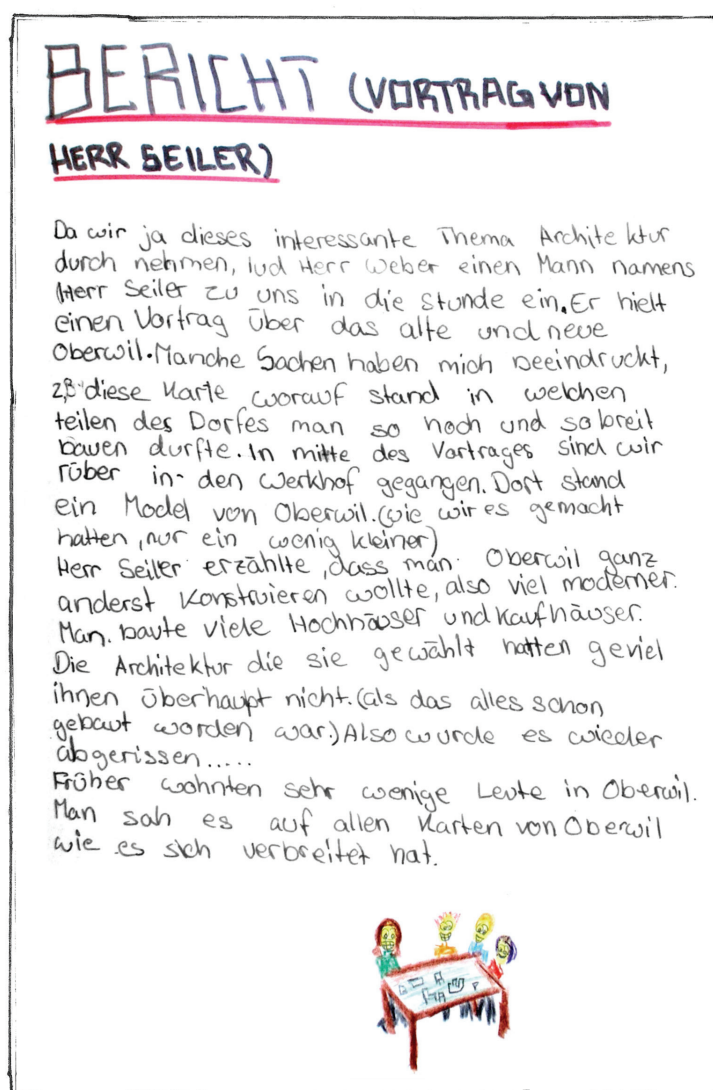 BERICHT (VORTRAG VON
HERR SEILER)
Da wir ja dieses interessante Thema Architektur
durch nehmen, lud Herr Weber einen Mann namens
Herr Seiler zu uns in die Stunde ein. Er hielt
einen Vortrag über das alte und neue
Oberwil. Manche Sachen haben mich beeindruckt,
z.B. diese Karte worauf stand in welchen
teilen des Dorfes man so hoch und so breit
bauen durfte. In mitte des Vortrages sind wir
rüber in den Werkhof gegangen. Dort stand
ein Model von Oberwil. (wie wir es gemacht
hatten, nur ein wenig kleiner)
Herr Seiler erzählte, dass man Oberwil ganz
anderst konstruieren wollte, also viel moderner.
Man baute viele Hochhäuser und Kaufhäuser.
Die Architektur die sie gewählt hatten geviel
ihnen überhaupt nicht. (als das alles schon
gebaut worden war.) Also wurde es wieder
abgerissen.....
Früher wohnten sehr wenige Leute in Oberwil.
Man sah es auf allen Karten von Oberwil
wie es sich verbreitet hat.